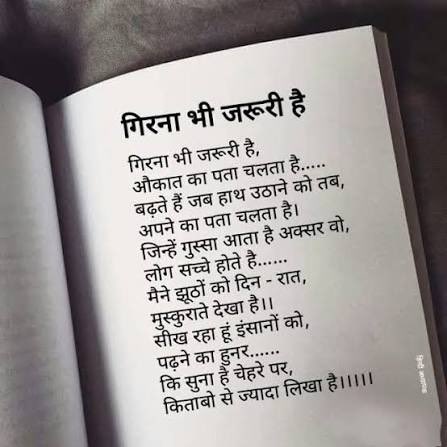 गिरना भी जरूरी है
गिरना भी जरूरी है,
औकात का पता चलता है.....
बढ़ते हैं जब हाथ उठाने को तब,
अपने का पता चलता है।
जिन्हें गुस्सा आता है अक्सर वो,
लोग सच्चे होते है......
मैने झूठों को दिन - रात,
मुस्कुराते देखा है।।
सीख रहा हूं इंसानों को,
पढ़ने का हुनर......
कि सुना है चेहरे पर,
किताबो से ज्यादा लिखा है।।।।।